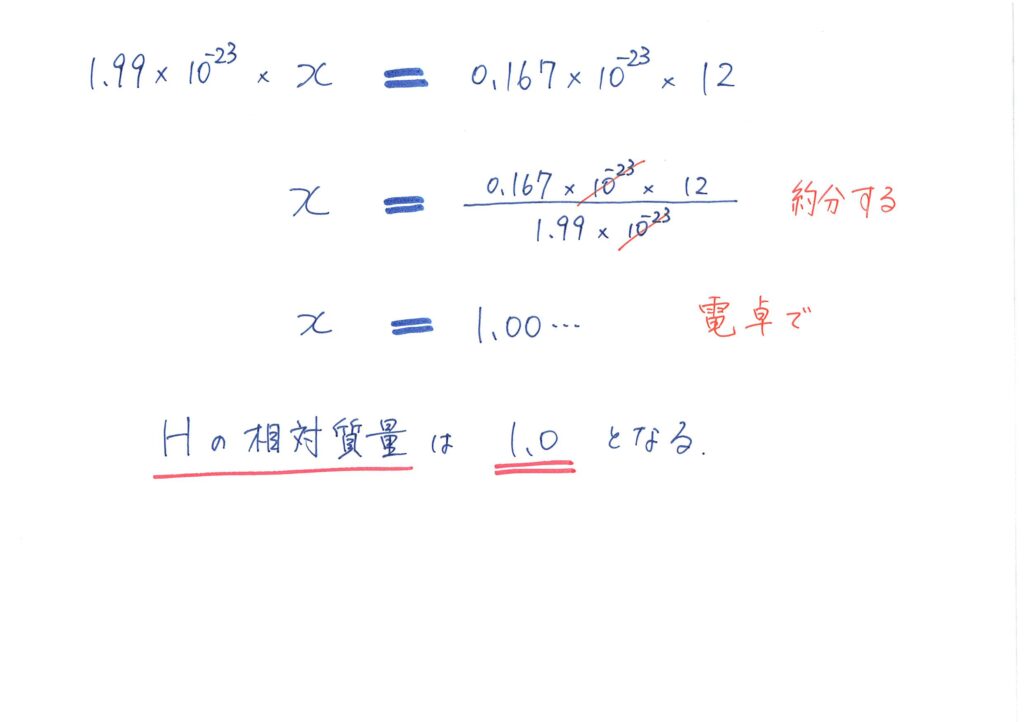 1.99 × 10⁻²³ × x = 0.167 × 10⁻²³ × 12
x = (0.167 × 10⁻²³ × 12) / (1.99 × 10⁻²³) 約分する
x = 1.00… 電卓で
Hの相対質量は 1.0 となる.